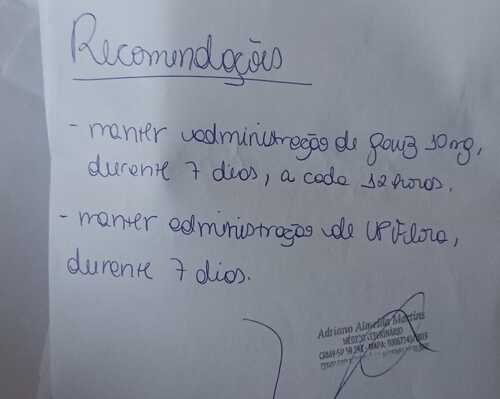 Recomendações
- manter administração de 10mg,
durante 7 dias, a cada 12 horas.
- manter administração de UPFlora,
durante 7 dias.
Adriano Almeida Martins
MÉDICO VETERINÁRIO
CRMV-SP